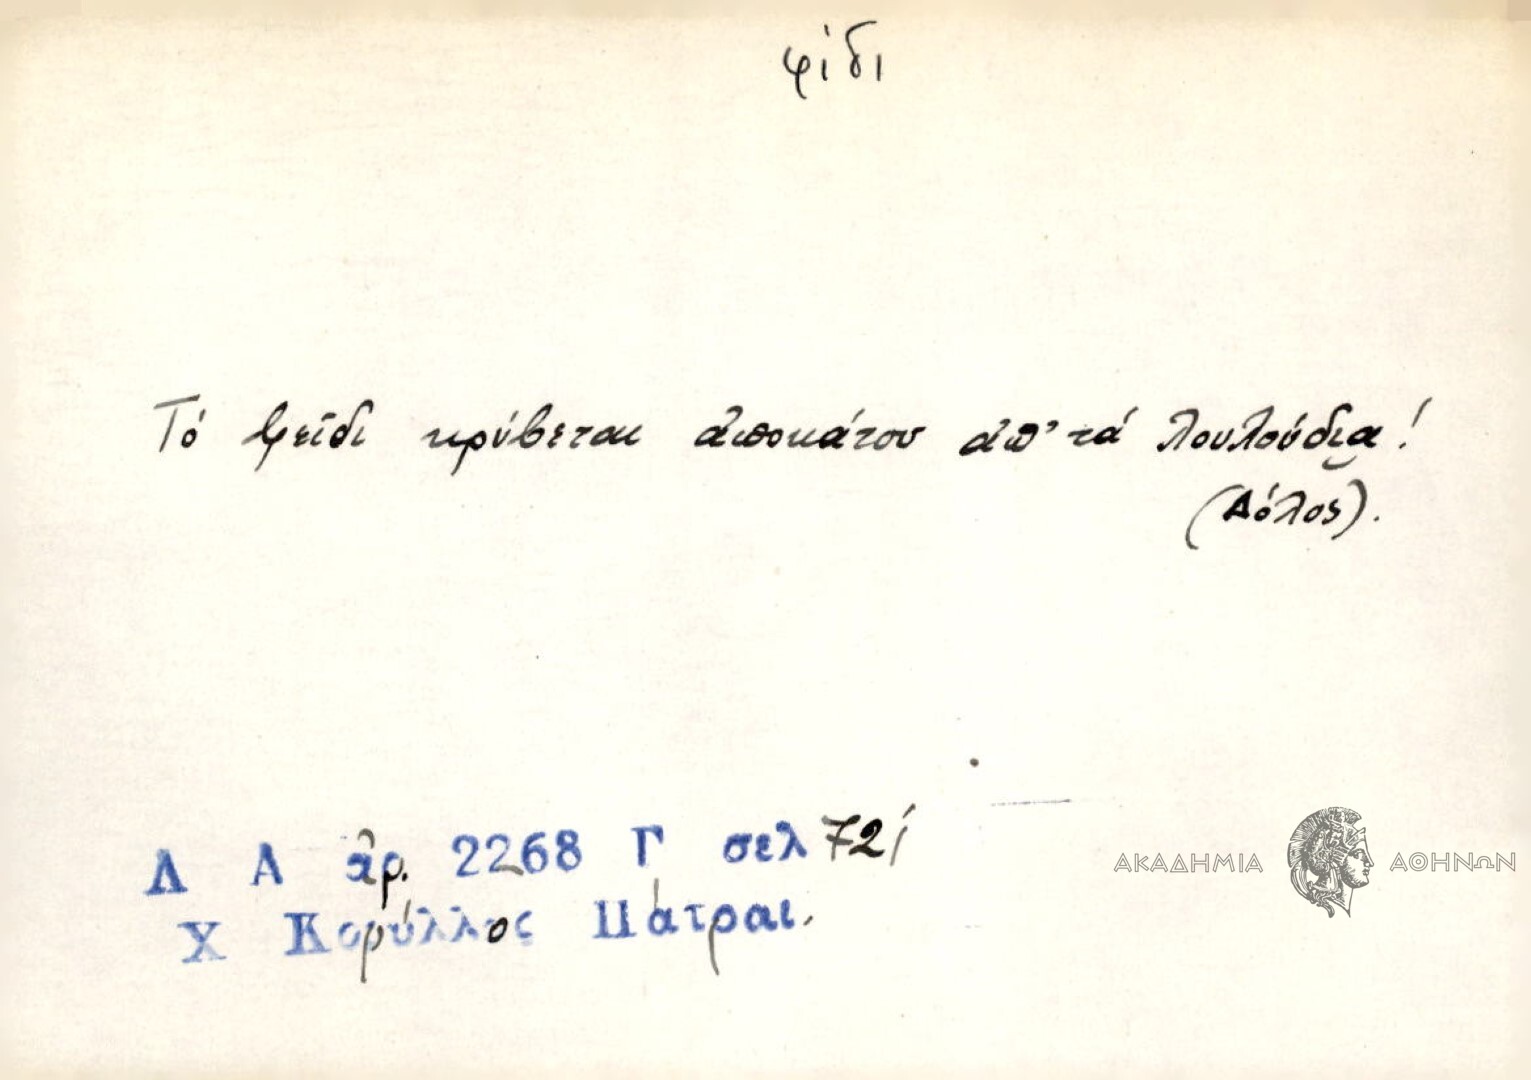 φίδι
Τό φεῖδι κρύβεται ἀποκάτου ἀπ' τά λουλούδια!
(Δόλος).
Λ Α ἀρ. 2268 Γ σελ 72
Χ Κορύλλος Πάτραι.
ΑΚΑΔΗΜΙΑ ΑΘΗΝΩΝ